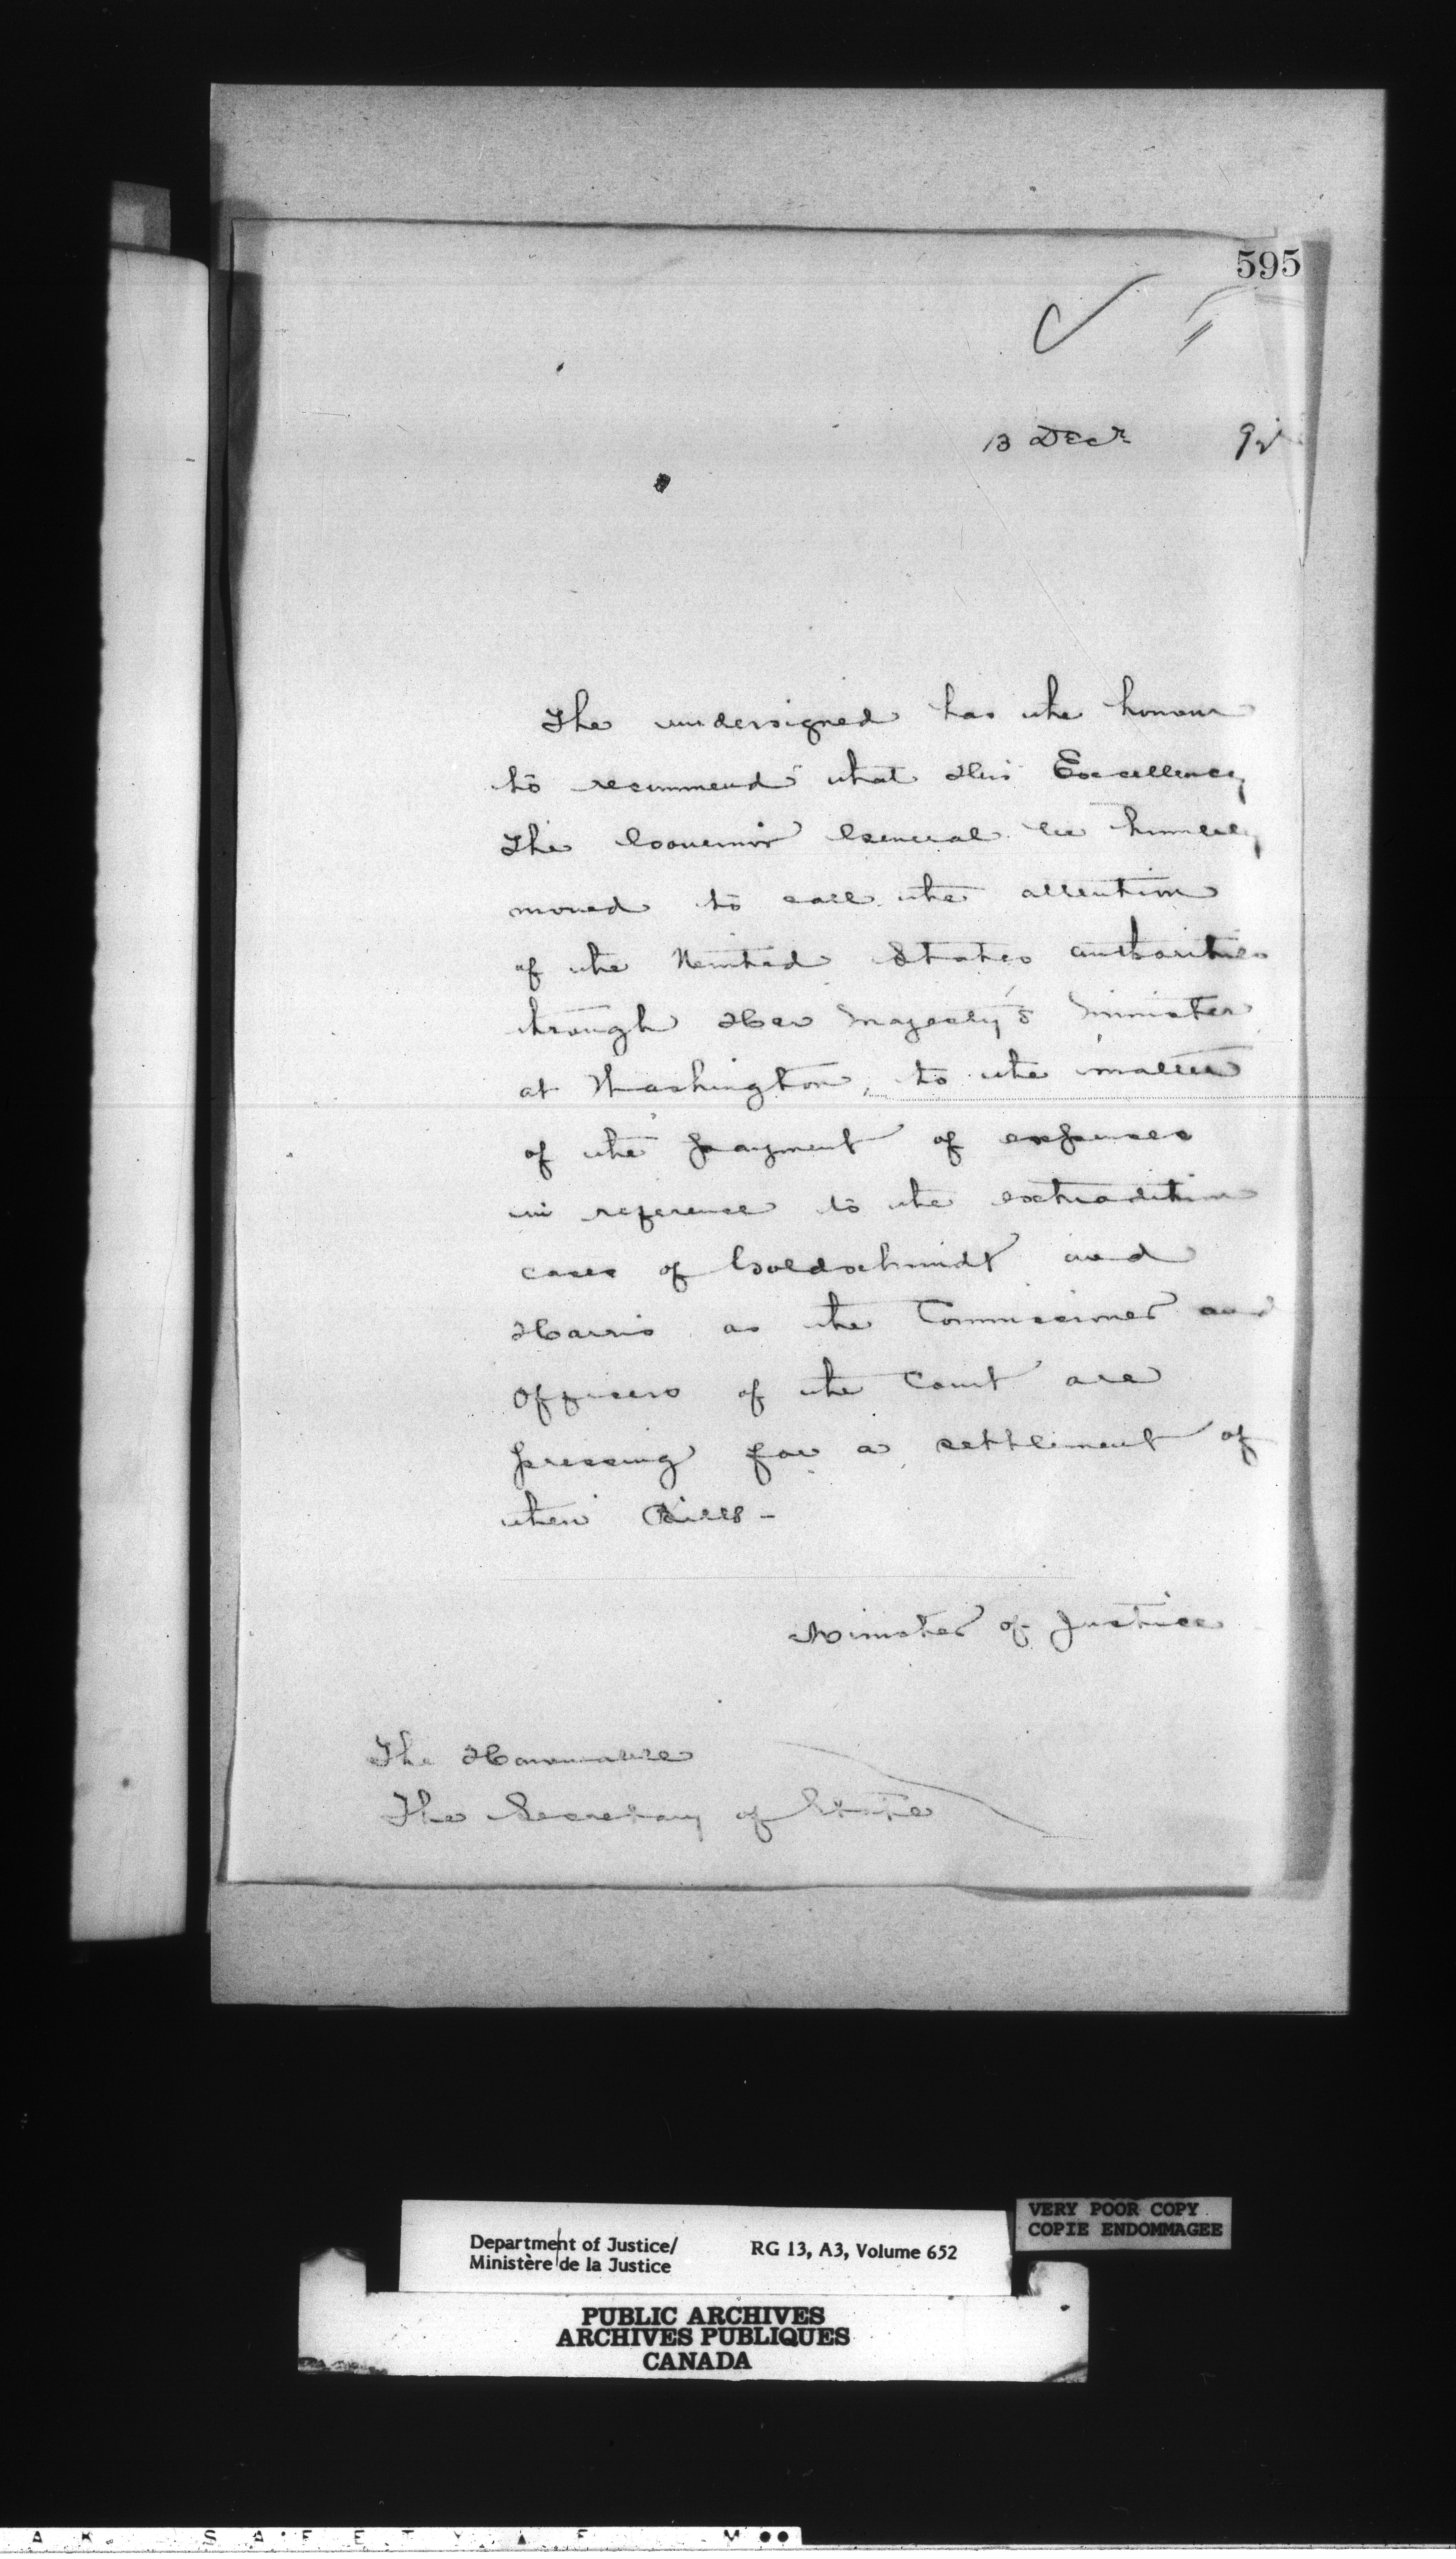 595
13 Decr 92
The undersigned has the honour
to recommend that His Excellency
The Governor General be humbly
moved to call the attention
of the United States authorities
through Her Majesty's Minister
at Washington, to the matter
of the payment of expenses
in reference to the extradition
cases of Goldschmidt and
Harris as the Commissioner and
Officers of the Court are
pressing for a settlement of
their Bills -
Minister of Justice
The Honourable
The Secretary of State
VERY POOR COPY
COPIE ENDOMMAGEE
Department of Justice/
Ministère de la Justice
RG 13, A3, Volume 652
PUBLIC ARCHIVES
ARCHIVES PUBLIQUES
CANADA